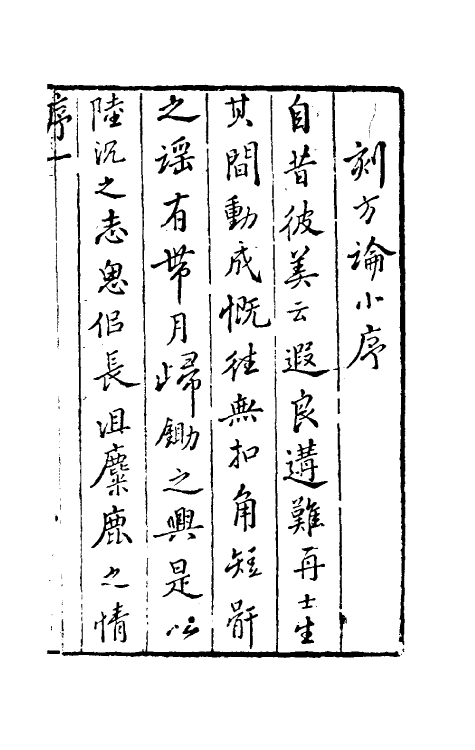 刻方論小序
自昔彼美云遐良遘難再士生
其間動成慨往無扣角短骭
之謡有帶月歸鋤之興是以
陸沉之志思侶長沮麋鹿之情
序一